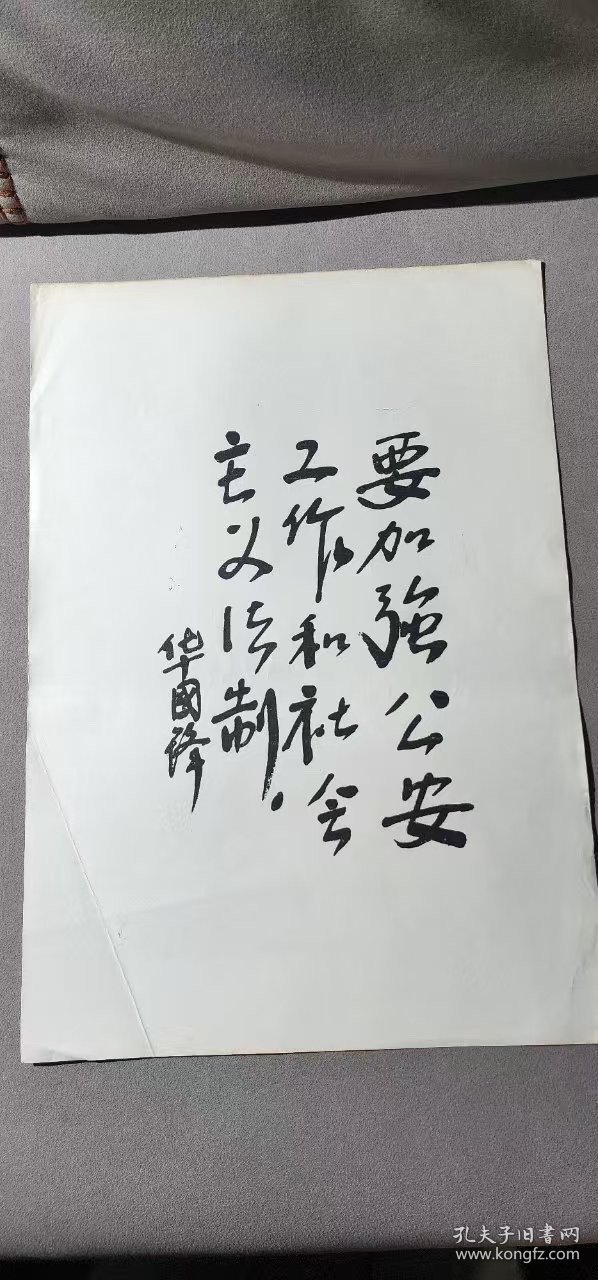 要加強公安
工作和社会
主义法制.
华國锋
孔夫子旧書网
www.kongfz.com